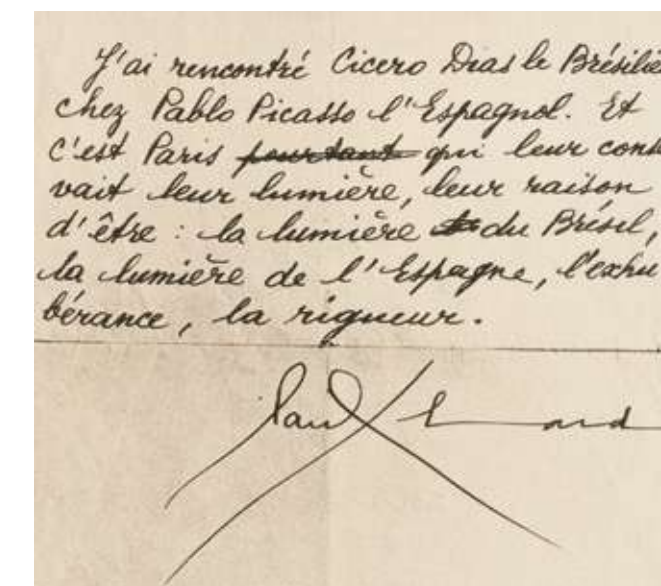 J'ai rencontré Cicero Dias le Brésilie
chez Pablo Picasso l'Espagnol. Et
c'est Paris pourtant qui leur cons
vait leur lumière, leur raison
d'être : la lumière du Brésil,
la lumière de l'Espagne, l'exhu
bérance, la rigueur.
Paul Eluard